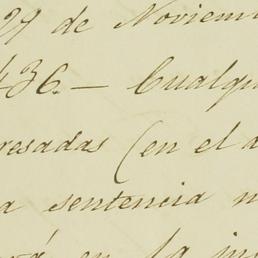 29 de Noviem
436.— Cualqu
resadas (en el a
a sentencia n
en la in